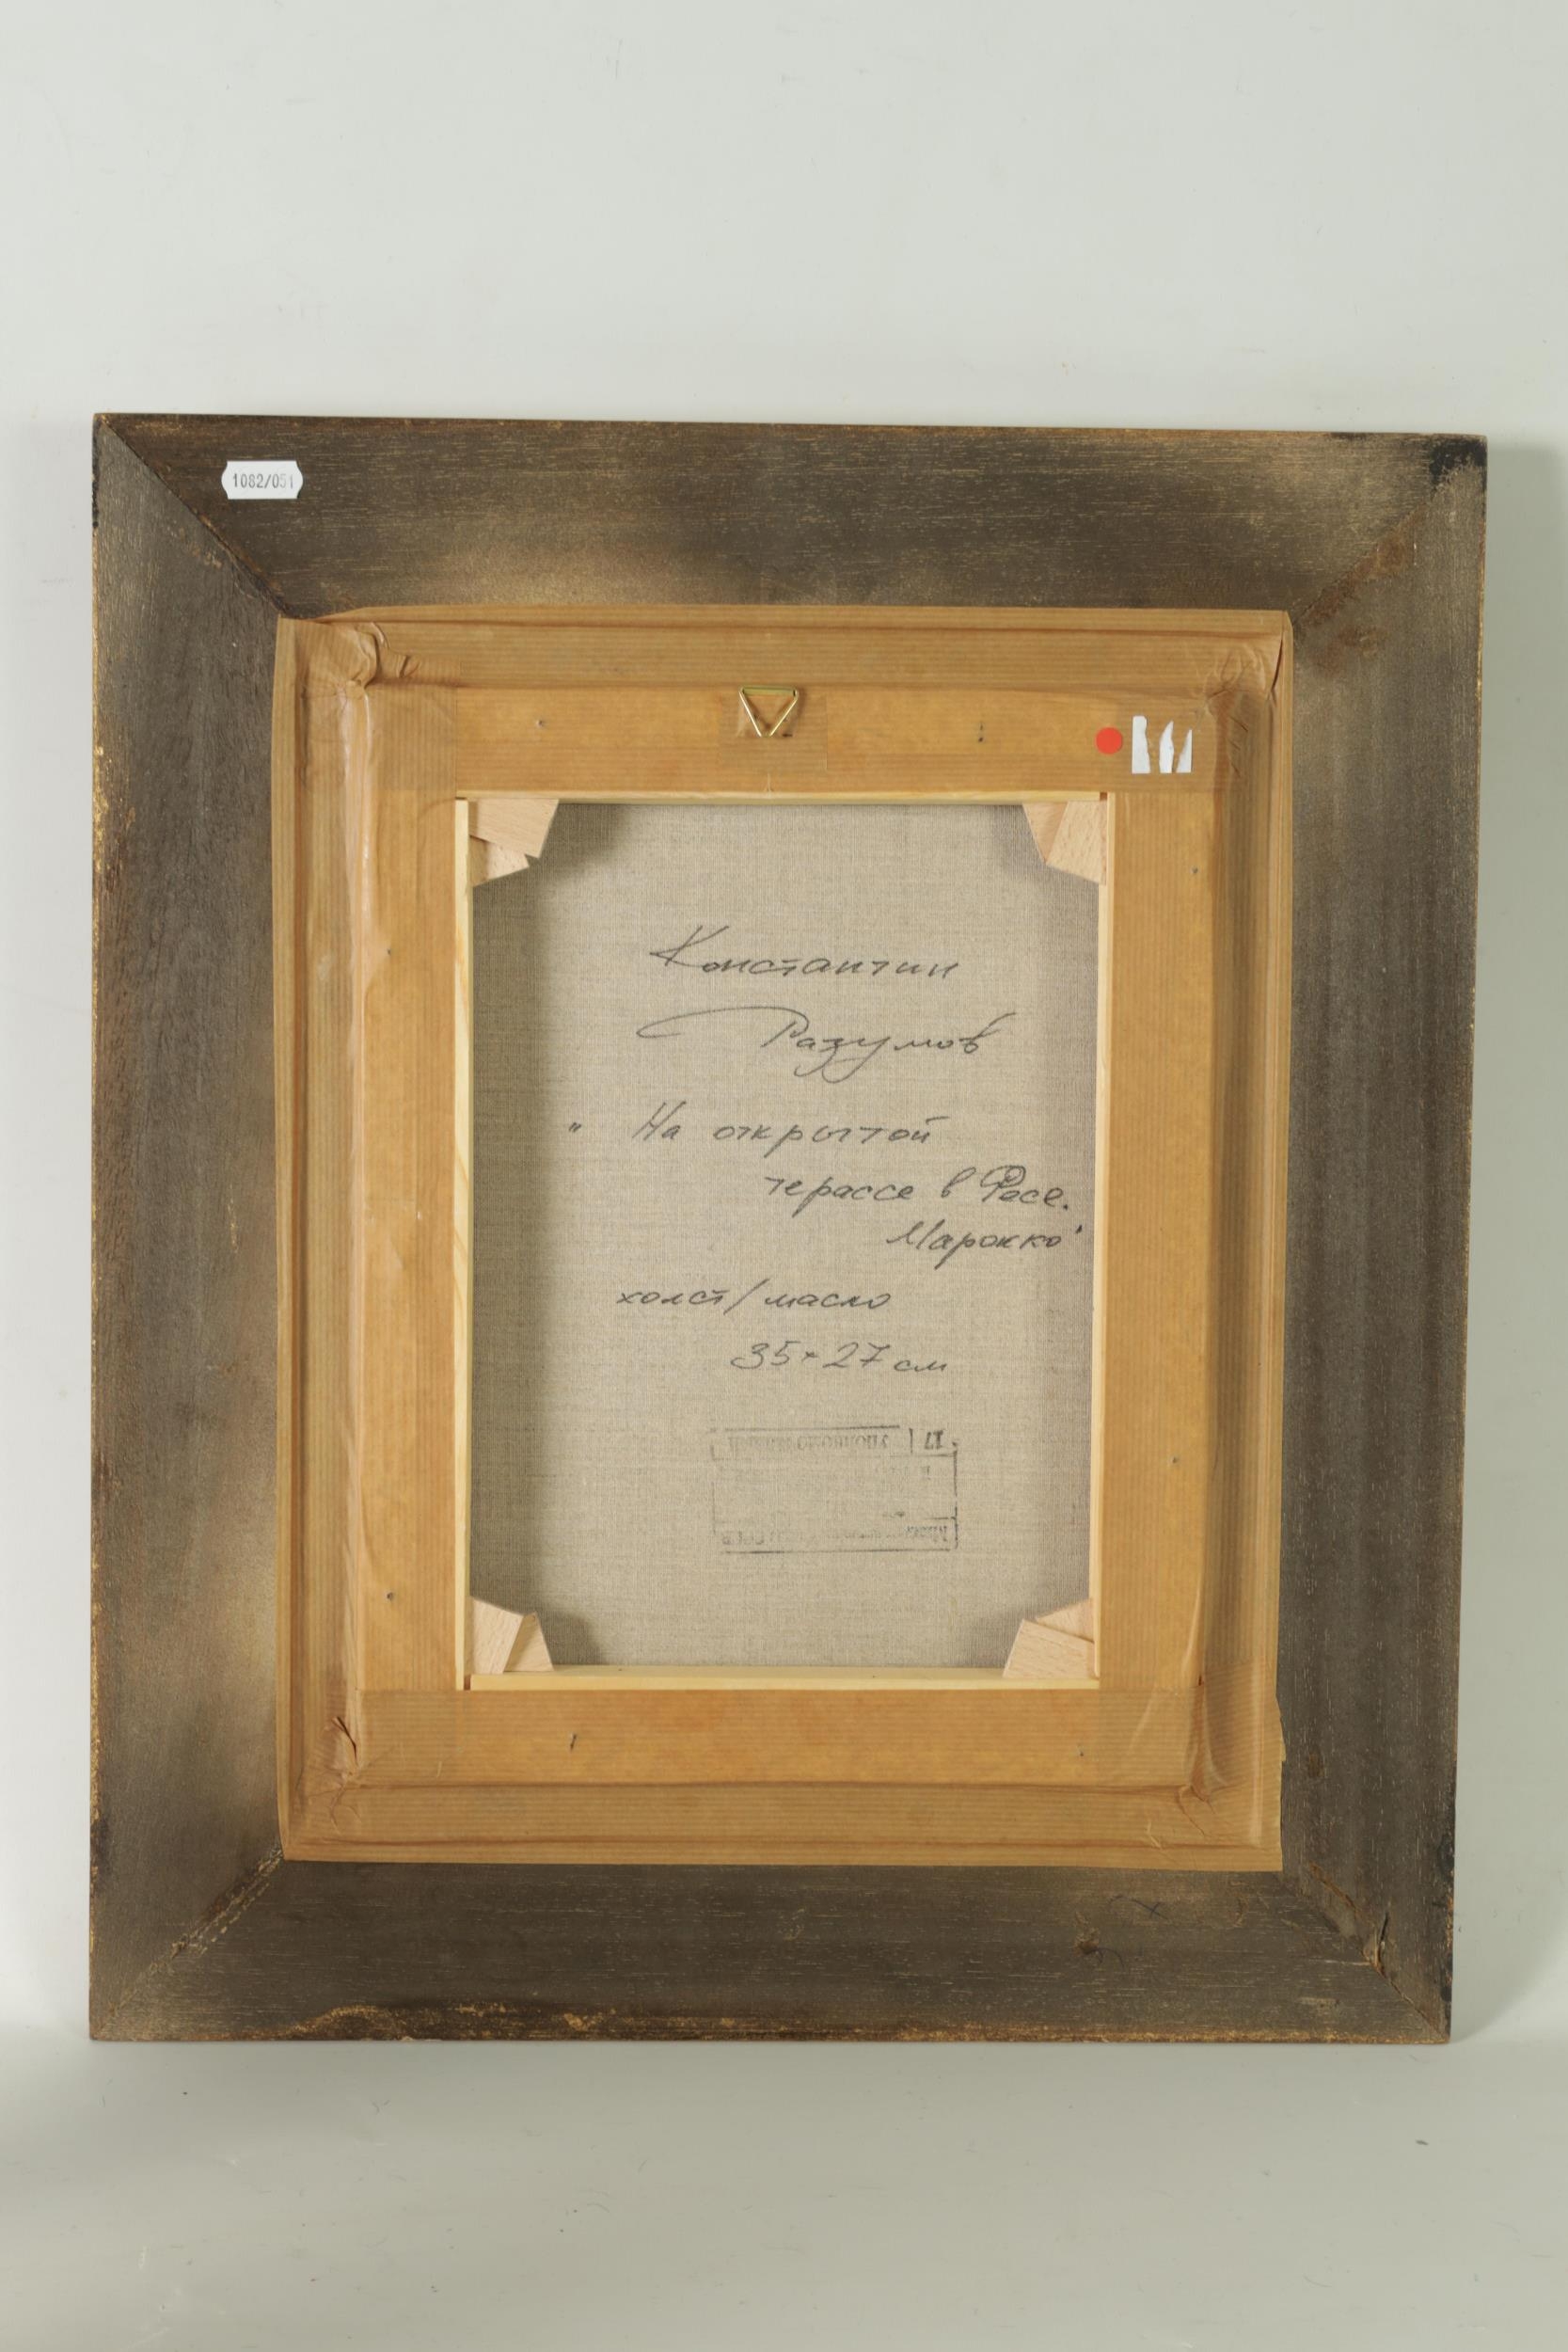 1082/051
Константин
Разумов
" На открытой
терассе в Фесе.
Марокко"
холст/масло
35×27 см
17